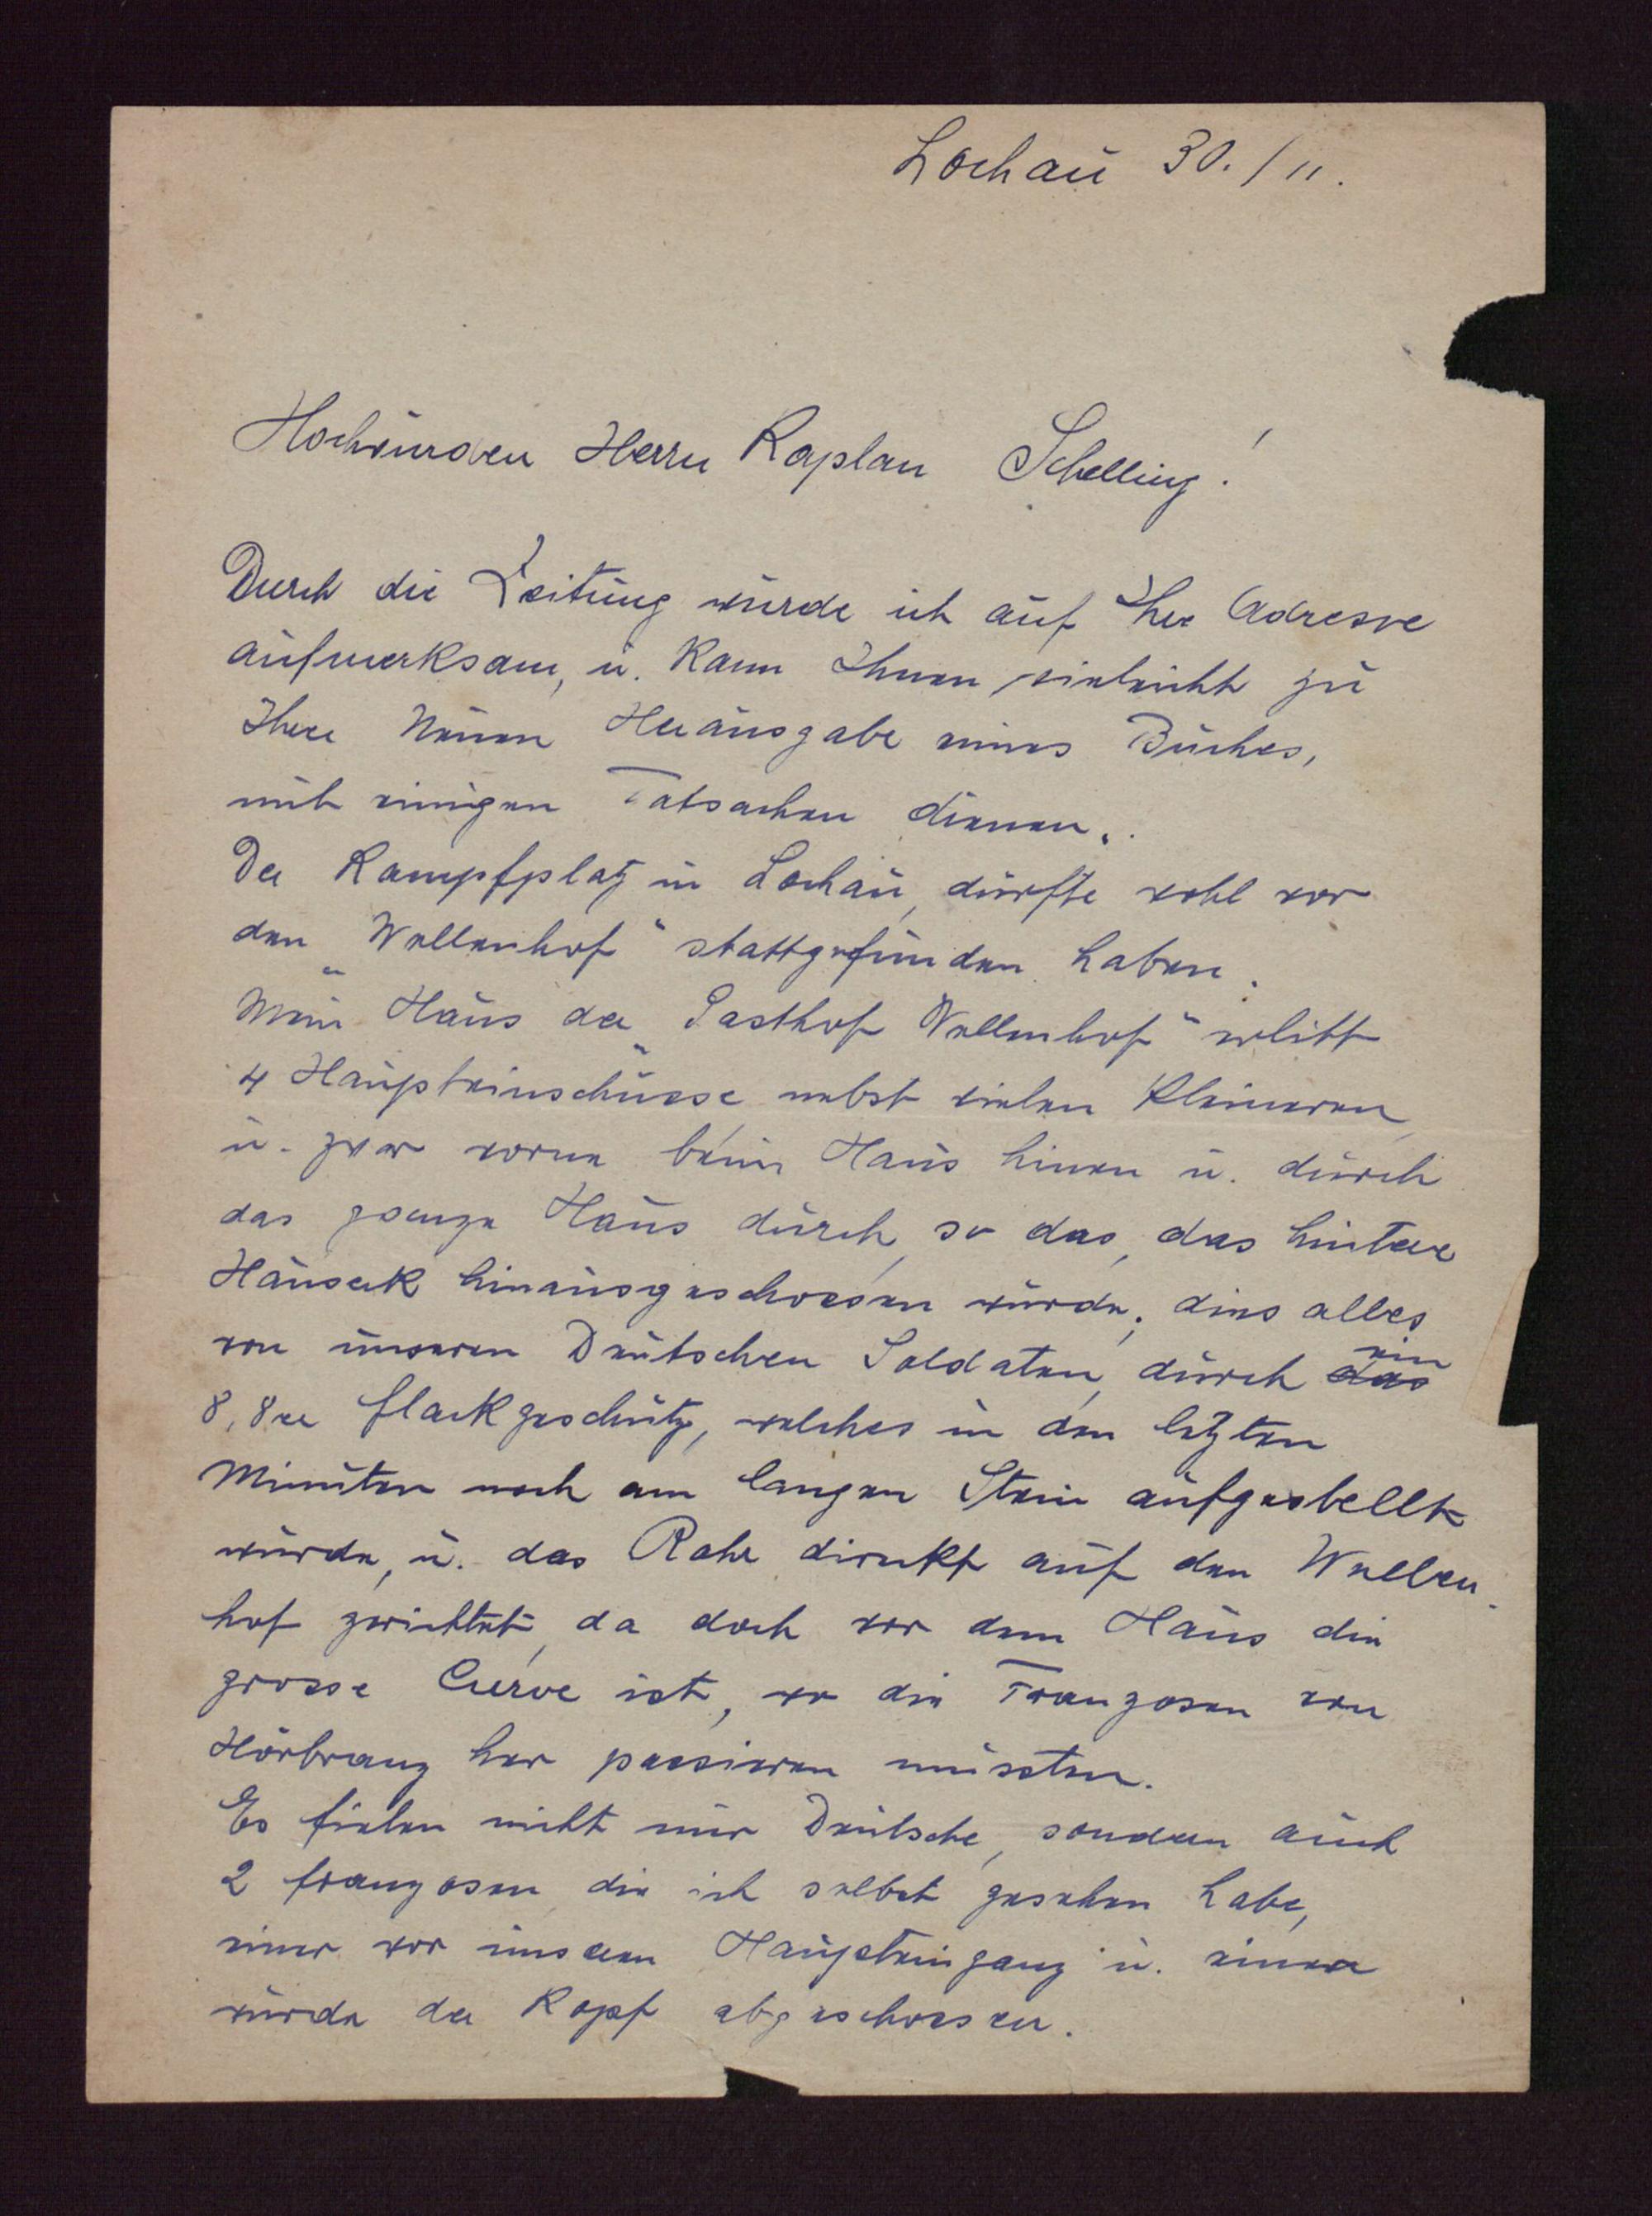 Lochau 30./11.
Hochwürden Herrn Kaplan Schelling!
Durch die Zeitung wurde ich auf Ihre Adresse
aufmerksam, u. kann Ihnen vieleicht zu
Ihrer Neuen Herausgabe eines Buches,
mit einigen Tatsachen dienen.
Der Kampfplatz in Lochau, dürfte wohl vor
den „Wellenhof" stattgefunden haben.
Mein Haus der „Gasthof Wellenhof" erlitt
4 Haupteinschüsse, nebst vielen kleineren,
u. zwar vorne beim Haus hinen u. durch
das ganze Haus durch, so das, das hintere
Hauseck hinausgeschossen wurde, dies alles
von unseren Deutschen Soldaten, durch das ein
8,8er Flackgeschütz, welches in den letzten
Minuten noch am langen Stein aufgestellt
wurde, u. das Rohr direkt auf den Wellen-
hof gerichtet, da doch vor dem Haus die
grosse Curve ist, wo die Franzosen von
Hörbranz her passieren mussten.
Es fielen nicht nur Deutsche, sondern auch
2 Franzosen die ich selbst gesehen habe,
einer vor unseren Haupteingang u. einer
wurde der Kopf abgeschossen.